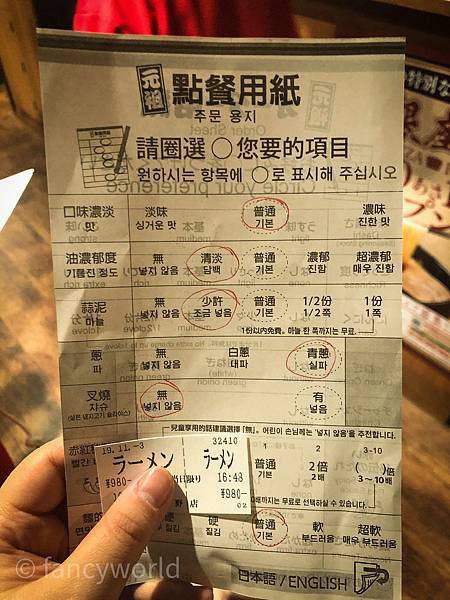 元祖 點餐用紙
주문 용지
請圈選○您要的項目
원하시는 항목에 ○로 표시해 주십시오
口味濃淡 淡味 普通 濃味
맛 싱거운 맛 기본 진한 맛
油濃郁度 無 清淡 普通 濃郁 超濃郁
기름진 정도 넣지 않음 담백 기본 진함 매우 진함
蒜泥 無 少許 普通 1/2份 1份
마늘 넣지 않음 조금 넣음 기본 1/2쪽 1쪽
1份以內免費。마늘 한 쪽까지는 무료.
蔥 無 白蔥 青蔥
파 넣지 않음 대파 실파
叉燒 無 有
차슈 넣지 않음 넣음
兒童享用的話建議選擇「無」。어린이 손님께는 '넣지 않음'을 추천합니다.
19.11.-3 32410
ラーメン ラーメン
¥980- 当日限り 16:48
¥980-
店 02
普通 2 3-10
기본 2倍 ( )倍
2배 3~10배
까지는 무료로 선택하실 수 있습니다.
硬 普通 軟 超軟
질김 기본 부드러움 매우 부드러움
日本語/ENGLISH
© fancyworld